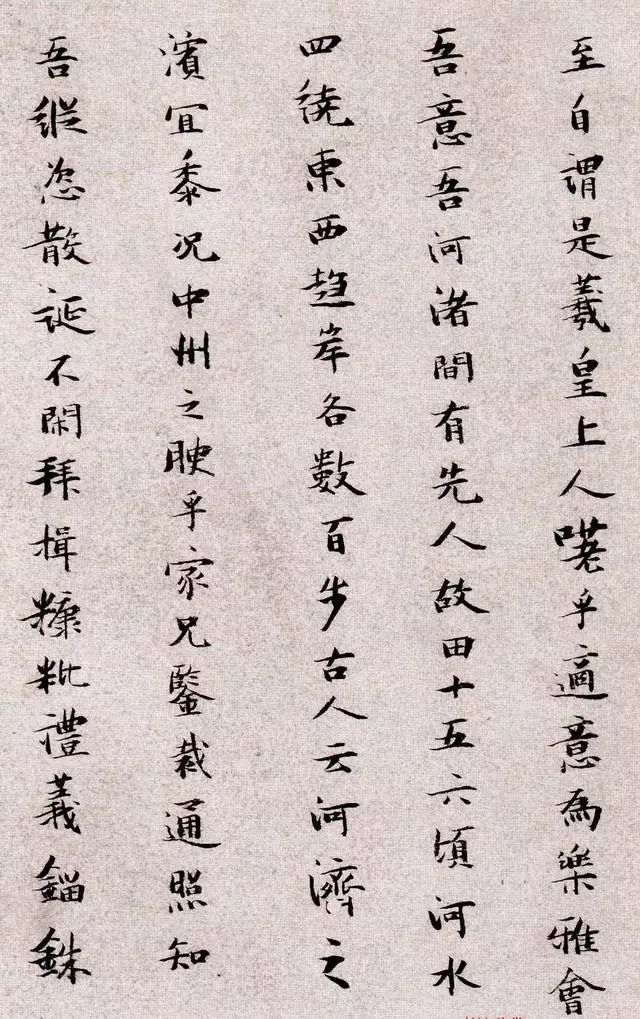 至自謂是羲皇上人嗟乎適意為樂雅會
吾意吾河渚間有先人故田十五六頃河水
四繞東西趋岸各數百步古人云河濟之
濱宜黍况中州之腴乎家兄鑒裁通照知
吾縱恣散誕不閑拜揖糠粃禮義錙銖